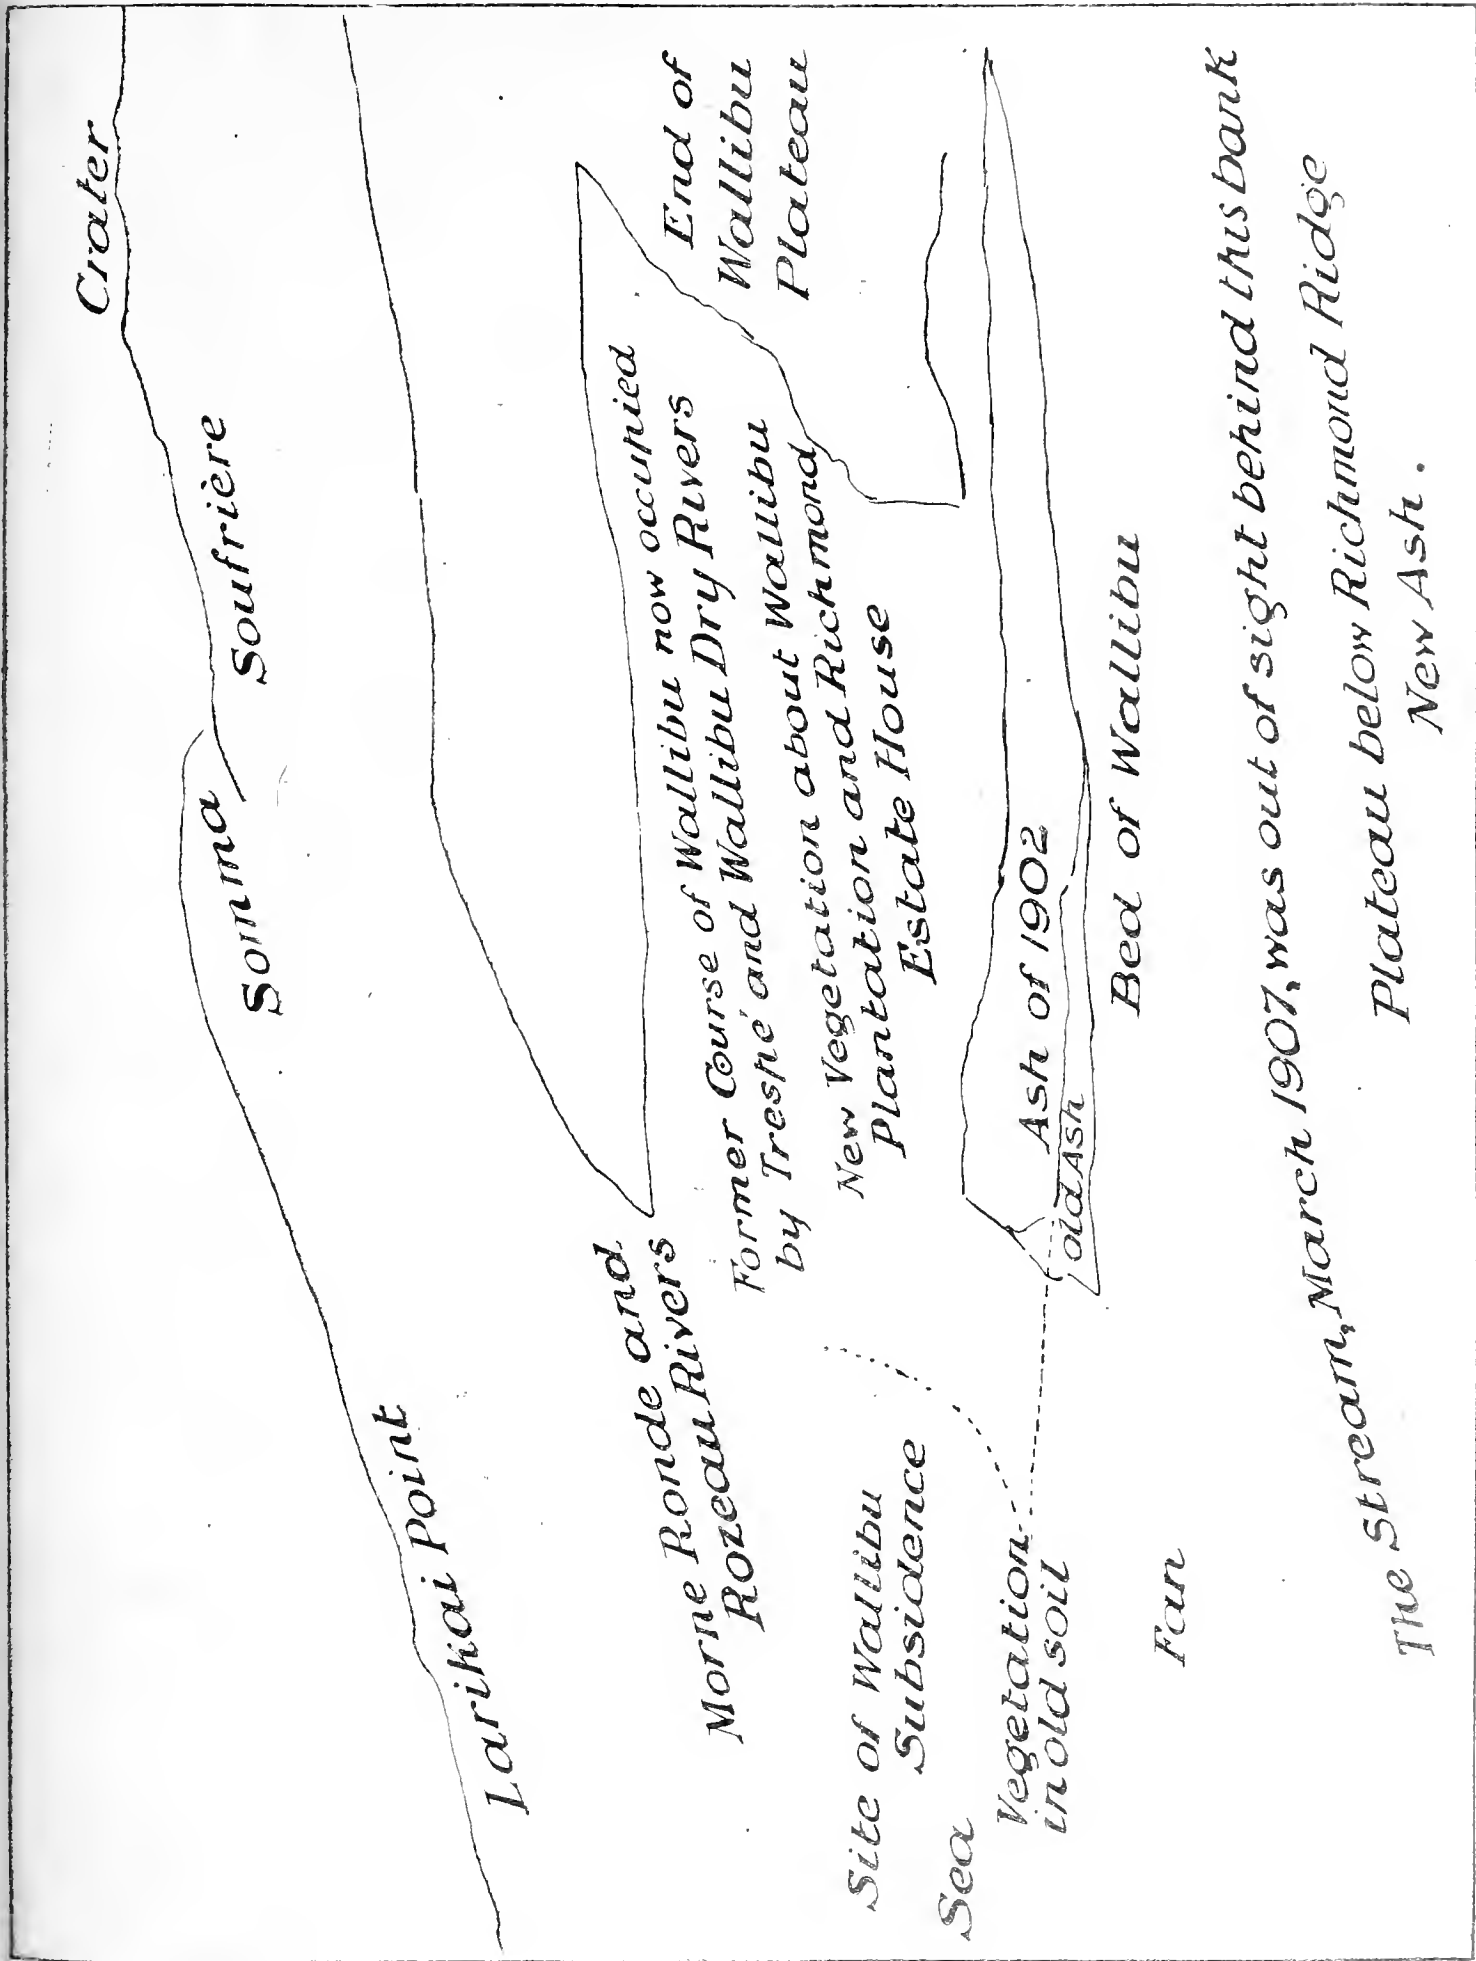 Crater
Soufrière
Somma
Larikai Point
End of
Wallibu
Plateau
Morne Ronde and
Rozeau Rivers
Former Course of Wallibu now occupied
by Trespé and Wallibu Dry Rivers
New Vegetation about Wallibu
Plantation and Richmond
Estate House
Site of Wallibu
Subsidence
Sea
Vegetation
in old soil
Ash of 1902
old Ash
Bed of Wallibu
Fan
The Stream, March 1907, was out of sight behind this bank
Plateau below Richmond Ridge
New Ash.